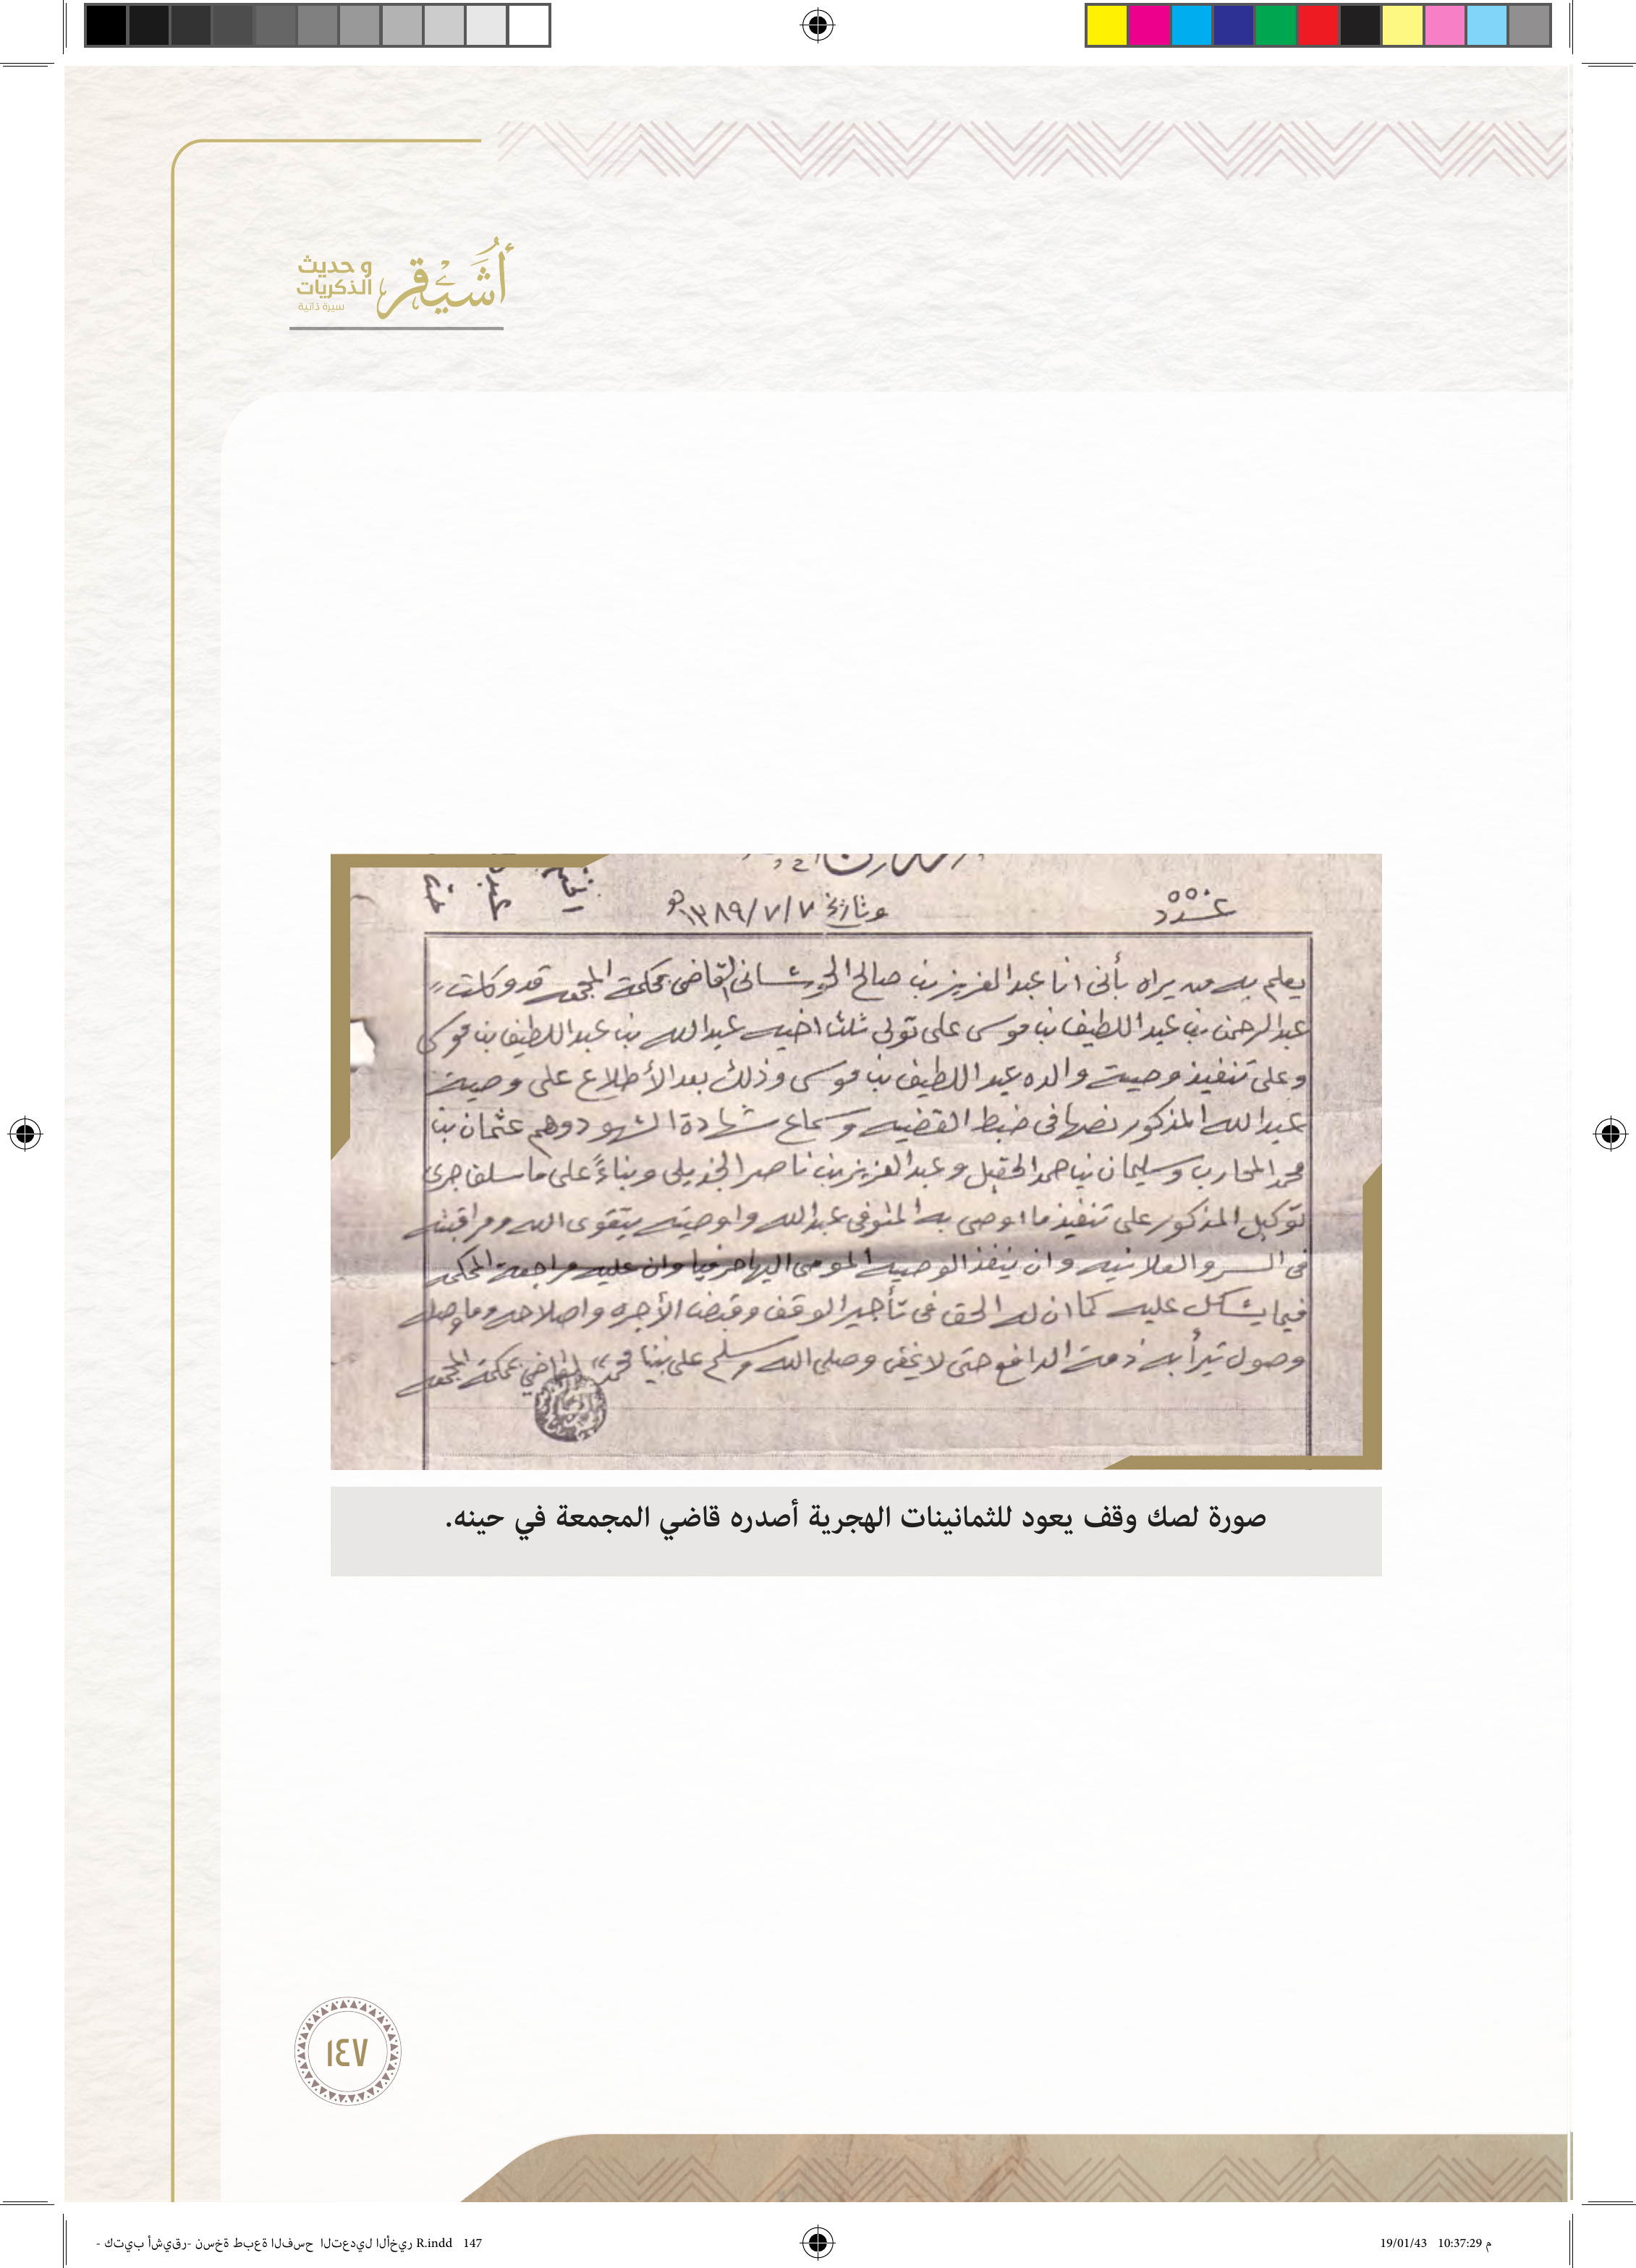 أُشَيْقر
و حديث
الذكريات
سيرة ذاتية
عدد ٥٥٠
وتاريخ ١٣٨٩/٧/٧هـ
يعلم به من يراه بأنى انا عبد العزيز بن صالح القاضى بمحكمة المجمعه قد وكلت
عبد الرحمن بن عبد اللطيف بن موسى على تولى ثلث اخيه عبد الله بن عبد اللطيف بن موسى
وعلى تنفيذ وصية والده عبد اللطيف بن موسى وذلك بعد الأطلاع على وصية
عبد الله المذكور نصها فى ضبط القضيه وسماع شهادة الشهود وهم عثمان بن
محمد المحارب وسليمان بن حمد الحقيل وعبد العزيز بن ناصر وبناءً على ما سلف جرى
توكيل المذكور على تنفيذ ما اوصى به المتوفى عبد الله واوصيته بتقوى الله ومراقبته
فى السر والعلانيه وان ينفذ الوصيه المومى اليها حرفيا وان عليه مراجعة المحكمه
فيما يشكل عليه كما ان له الحق فى تأجير الوقف وقبض الأجره واصلاحه وما وصله
وصول تبرأ به ذمة الدافع حتى لا يخفى وصلى الله وسلم على نبينا محمد القاضي بمحكمة المجمعه
صورة لصك وقف يعود للثمانينات الهجرية أصدره قاضي المجمعة في حينه.
١٤٧
كتيب أشيقر- نسخة طبعة الفسح التعديل الأخير - R.indd 147
19/01/43 10:37:29 م